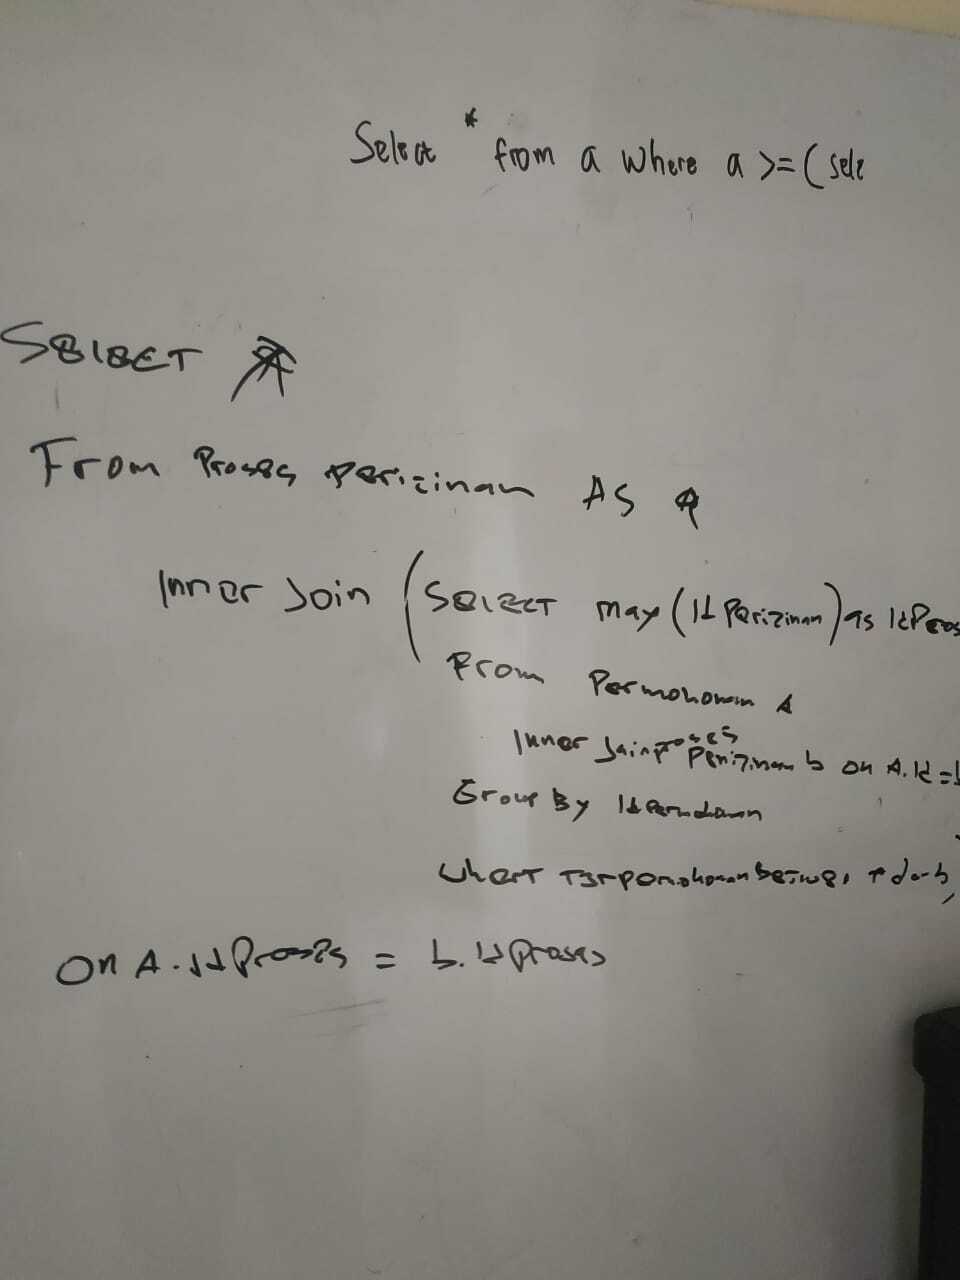 Select * from a where a >= ( sele
SELECT *
From Proses perizinan AS a
Inner Join ( SELECT max (Id Perizinan) as IdPros
From Permohonan A
Inner Join proses Perizinan b on A.Id =
Group By Id Permohonan
where
On A.IdProses = b.IdProses